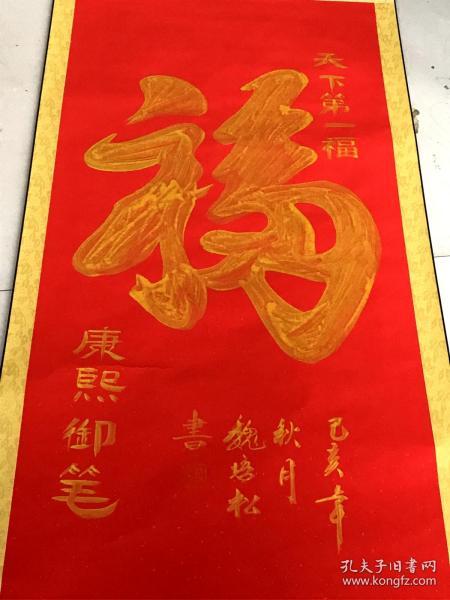 天下第一福
福
康熙御笔
己亥年
秋月
魏培松
書
孔夫子旧书网
www.kongfz.com